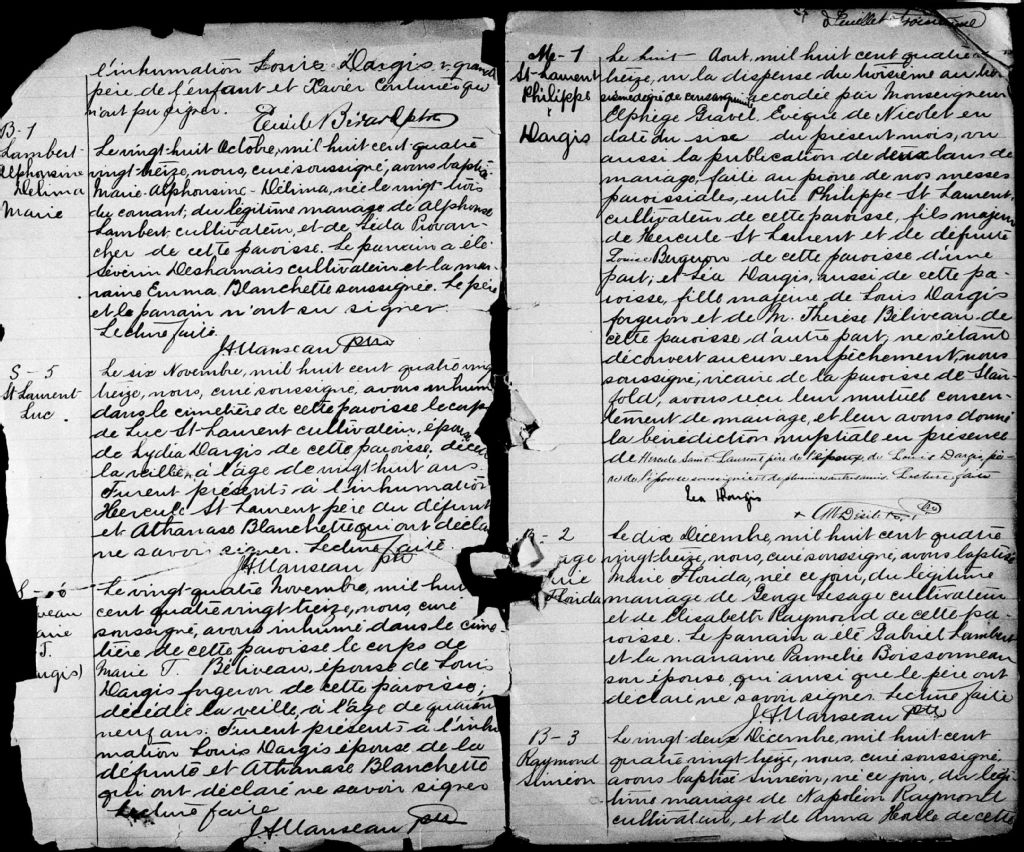 l'inhumation Louis Dargis grand
père de l'enfant et Xavier Couturier qui
n'ont pu signer.
Emile Birard ptre
B-1
Lambert
Alphonsine
Délima
Marie
Le vingt-huit Octobre, mil huit cent quatre
vingt-treize, nous, curé soussigné, avons baptisé
Marie-Alphonsine-Délima, née le vingt-trois
du courant, du légitime mariage de Alphonse
Lambert cultivateur, et de Léda Provan-
cher de cette paroisse. Le parrain a été
Sévérin Desharnais cultivateur et la mar-
raine Emma Blanchette soussignée. Le père
et le parrain n'ont su signer.
Lecture faite
J A Manseau ptre
S-5
St-Laurent
Luc
Le six Novembre, mil huit cent quatre ving
treize, nous, curé soussigné, avons inhumé
dans le cimetière de cette paroisse le corps
de Luc St-Laurent cultivateur, époux
de Lydia Dargis de cette paroisse, décédé
la veille, à l'âge de vingt-huit ans.
Furent présents à l'inhumation
Hercule St Laurent père du défunt
et Athanase Blanchette qui ont décla
ne savoir signer. Lecture faite.
J A Manseau ptre
S-6
veau
arie
T.
argis)
Le vingt quatre Novembre, mil huit
cent quatre vingt treize, nous, curé
soussigné, avons inhumé dans le cime
tière de cette paroisse le corps de
Marie T. Béliveau, épouse de Louis
Dargis forgeron de cette paroisse,
décédée la veille, à l'âge de quaran
neuf ans. Furent présents à l'inhu
mation Louis Dargis épouse de la
défunte et Athanase Blanchette
qui ont déclaré ne savoir signer
Lecture faite
J A Manseau ptre
Feuillet troisième
M-1
St-Laurent
Philippe
Dargis
Le huit Aout, mil huit cent quatre
treize, vu la dispense du troisième au troi
sième degré de consanguinité accordée par Monseigneur
Elphège Gravel, Evêque de Nicolet en
date du sise du présent mois, vu
aussi la publication de deux bans de
mariage, faite au prône de nos messes
paroissiales, entre Philippe St-Laurent,
cultivateur de cette paroisse, fils majeur
de Hercule St Laurent et de défunte
Louise Bergeron de cette paroisse d'une
part; et Léa Dargis, aussi de cette pa-
roisse, fille majeure de Louis Dargis
forgeron et de M. Thérèse Béliveau de
cette paroisse d'autre part, ne s'étant
découvert aucun empêchement, nous
soussigné, vicaire de la paroisse de Stan-
fold, avons reçu leur mutuel consen-
tement de mariage, et leur avons donné
la bénédiction nuptiale en présence
de Hercule Saint Laurent père de l'époux, de Louis Dargis pè-
re de l'épouse soussignés et de plusieurs autres amis. Lecture faite
Lea Dargis
B-2
age
rie
Florida
Le dix Décembre, mil huit cent quatre
vingt-treize, nous, curé soussigné, avons baptisé
Marie Florida, née ce jour, du légitime
mariage de George Lesage cultivateur
et de Elisabeth Raymond de cette pa-
roisse. Le parrain a été Gabriel Lambert
et la marraine Parmélie Boissonneau
son épouse, qui ainsi que le père ont
déclaré ne savoir signer. Lecture faite
J A Manseau ptre
B-3
Raymond
Siméon
Le vingt deux Décembre, mil huit cent
quatre vingt treize, nous, curé soussigné,
avons baptisé Siméon, né ce jour, du légi
time mariage de Napoléon Raymond
cultivateur, et de Anna Houle de cette